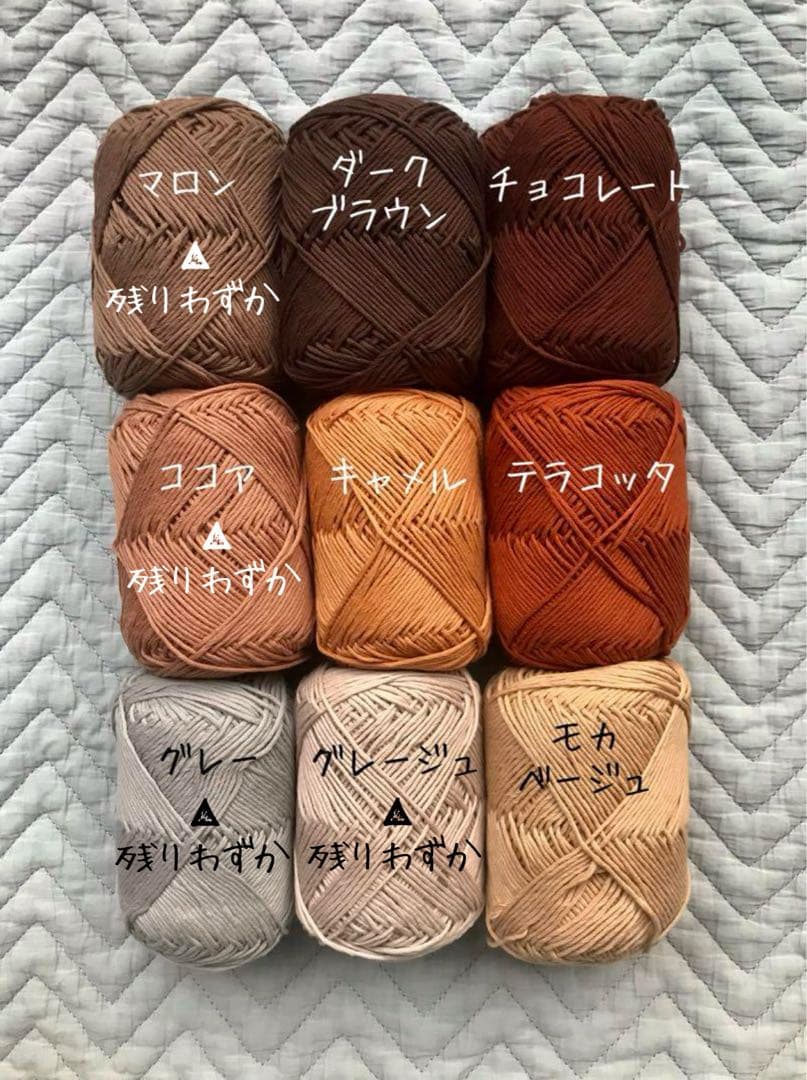 マロン
残りわずか
ダーク
ブラウン
チョコレート
ココア
残りわずか
キャメル
テラコッタ
グレー
残りわずか
グレージュ
残りわずか
モカ
ベージュ